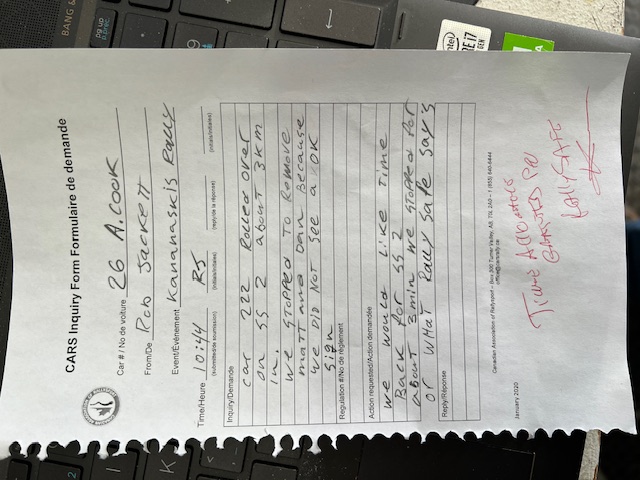 CARS Inquiry Form Formulaire de demande
Car # / No de voiture 26 A. COOK
From/De Rob Jackett
Event/Evènement Kananaskis Rally
Time/Heure 10:44 RJ
(submitted/de soumission) (initials/initiales) (reply/de la réponse) (initials/initiales)
Inquiry/Demande
car 222 Rolled over
on SS 2 about 3km
in.
we stopped to remove
matt and Dan Because
we DID NOT see a OK
sign
Regulation #/No de règlement
Action requested/Action demandée
we would Like Time
Back for SS 2
about 3min we stopped for
or what Rally safe say's
Reply/Réponse
Canadian Association of Rallysport
January 2020
TIME ALLOWANCE
GRANTED PER
RALLYSAFE
BANG &
pg up
intel